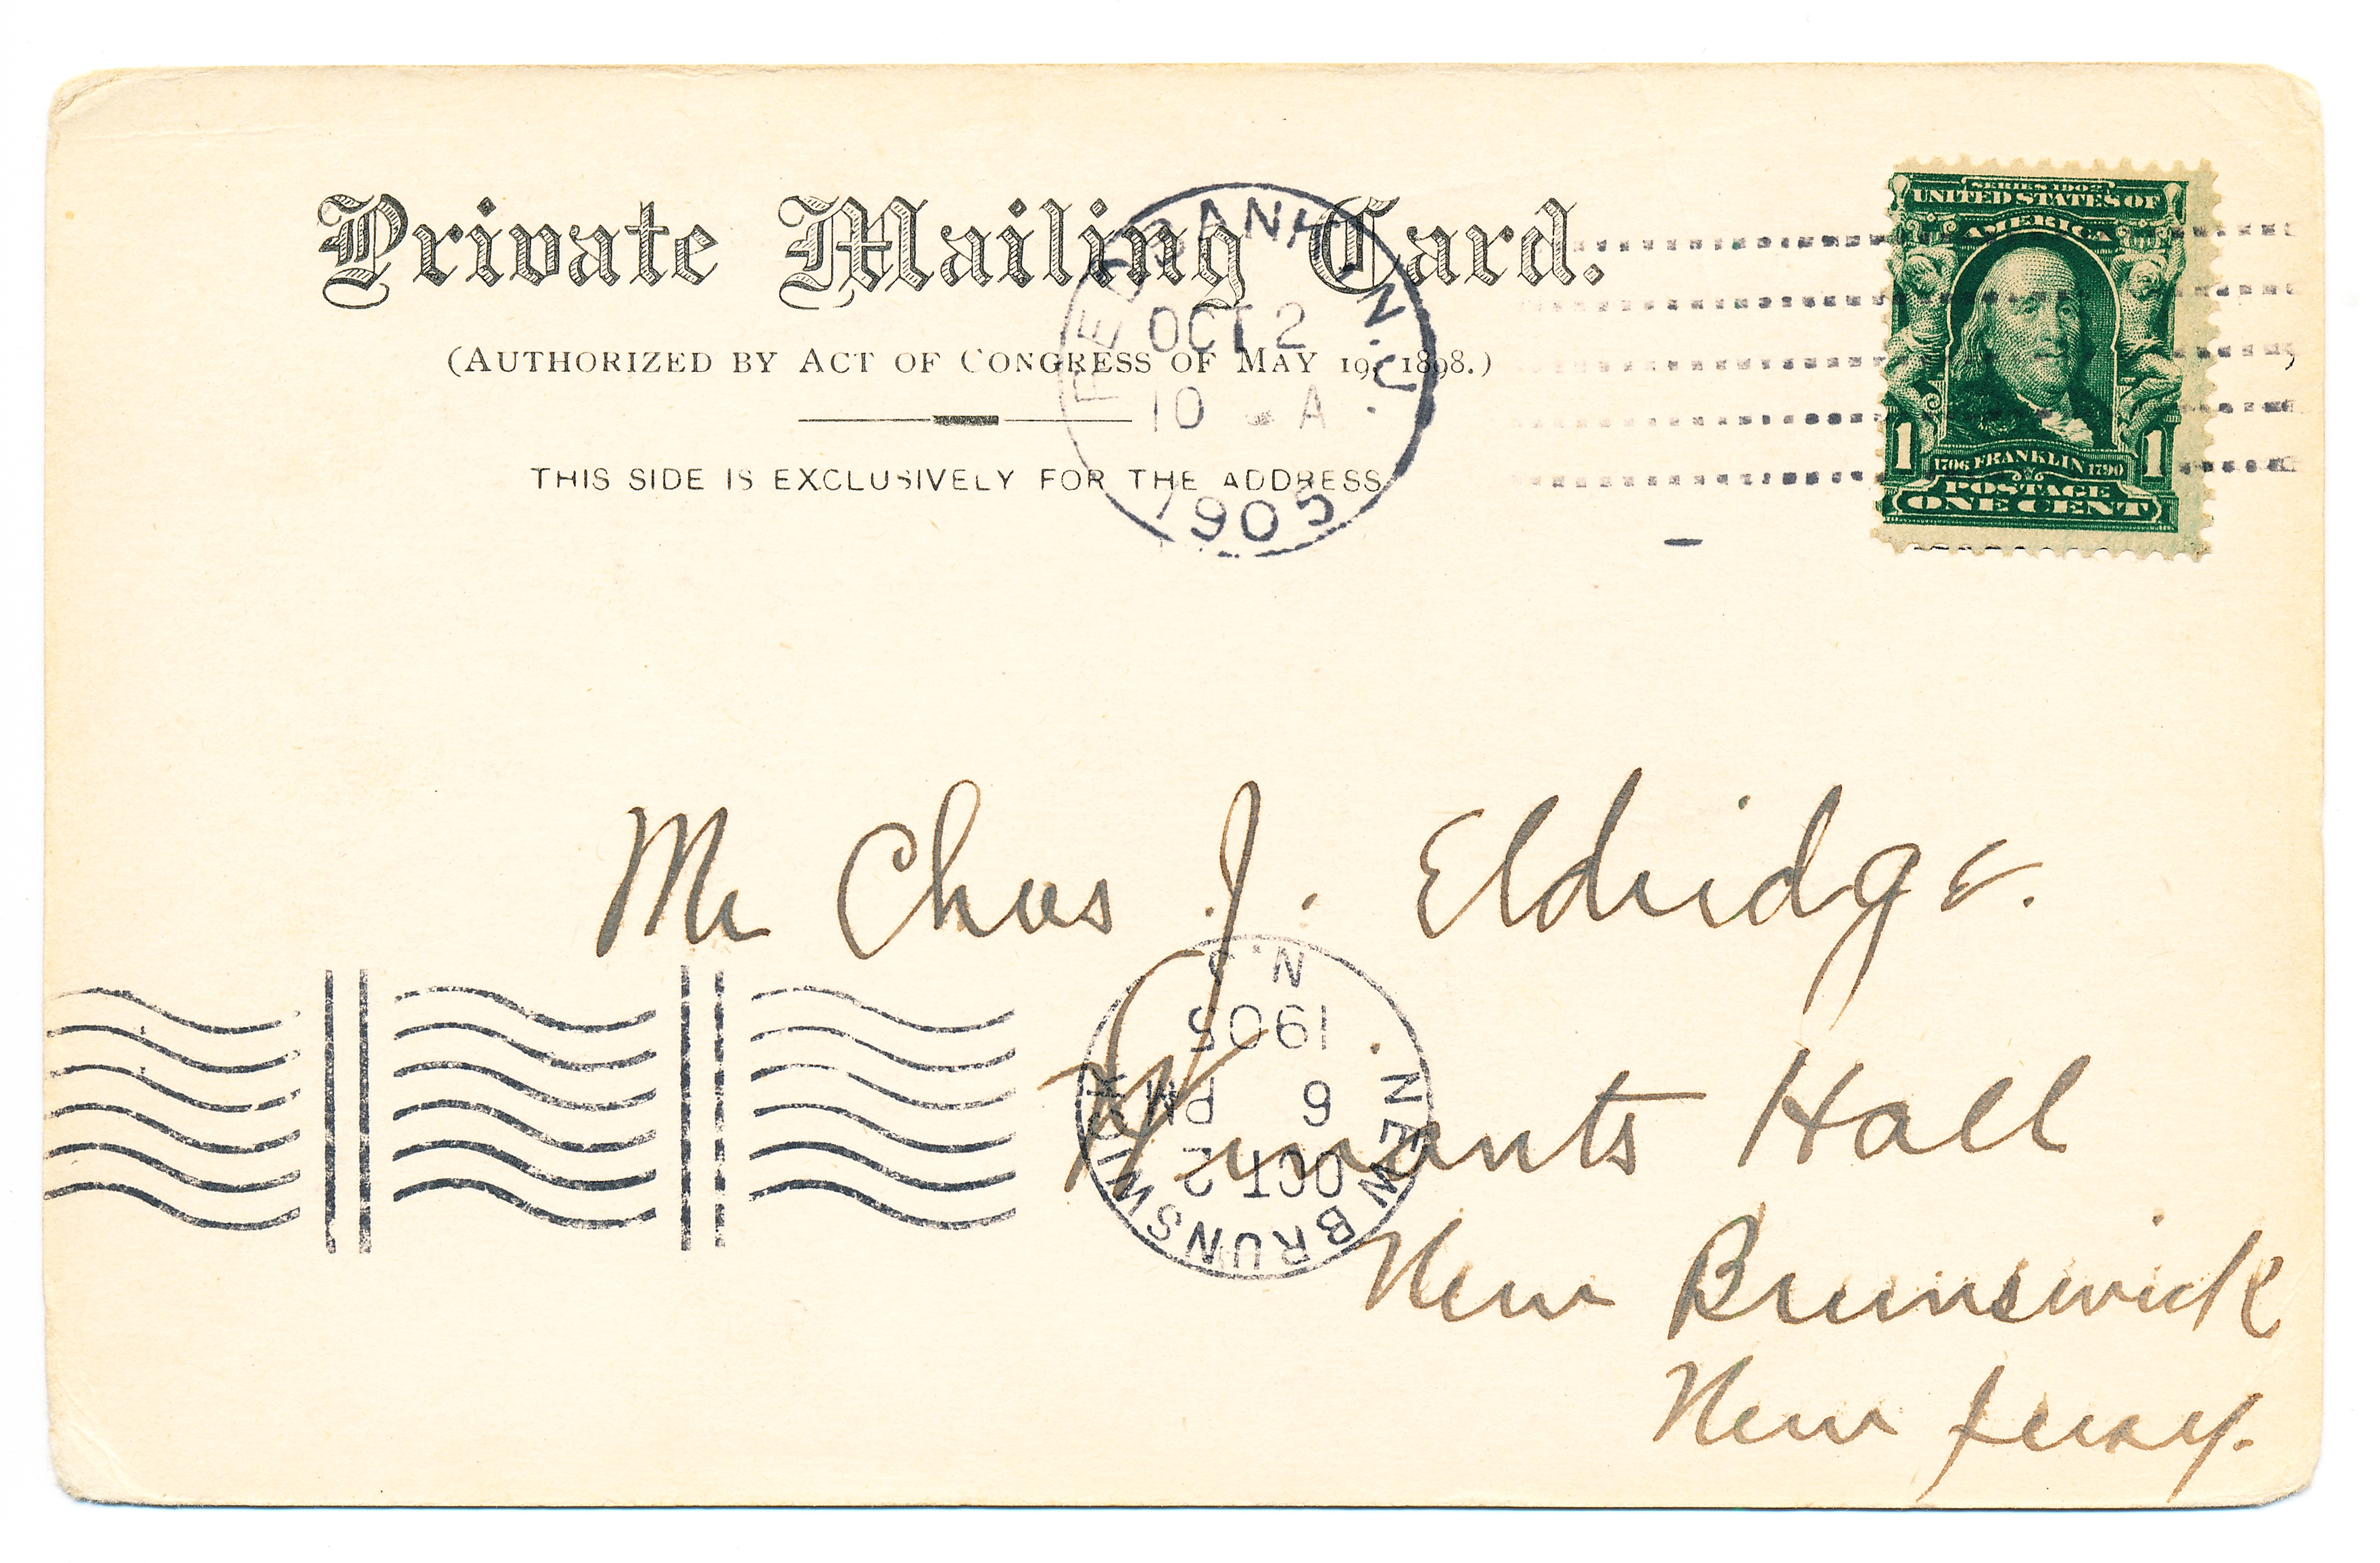 Private Mailing Card.
(AUTHORIZED BY ACT OF CONGRESS OF MAY 19, 1898.)
THIS SIDE IS EXCLUSIVELY FOR THE ADDRESS
RED BANK N.J.
OCT 2
10 A
1905
SERIES 1902
UNITED STATES OF
AMERICA
1 1
1706 FRANKLIN 1790
POSTAGE
ONE CENT
Mr Chas J. Eldridge.
Winants Hall
New Brunswick
New Jersey.
NEW BRUNSWICK
N.J.
OCT 2
6 PM
1905